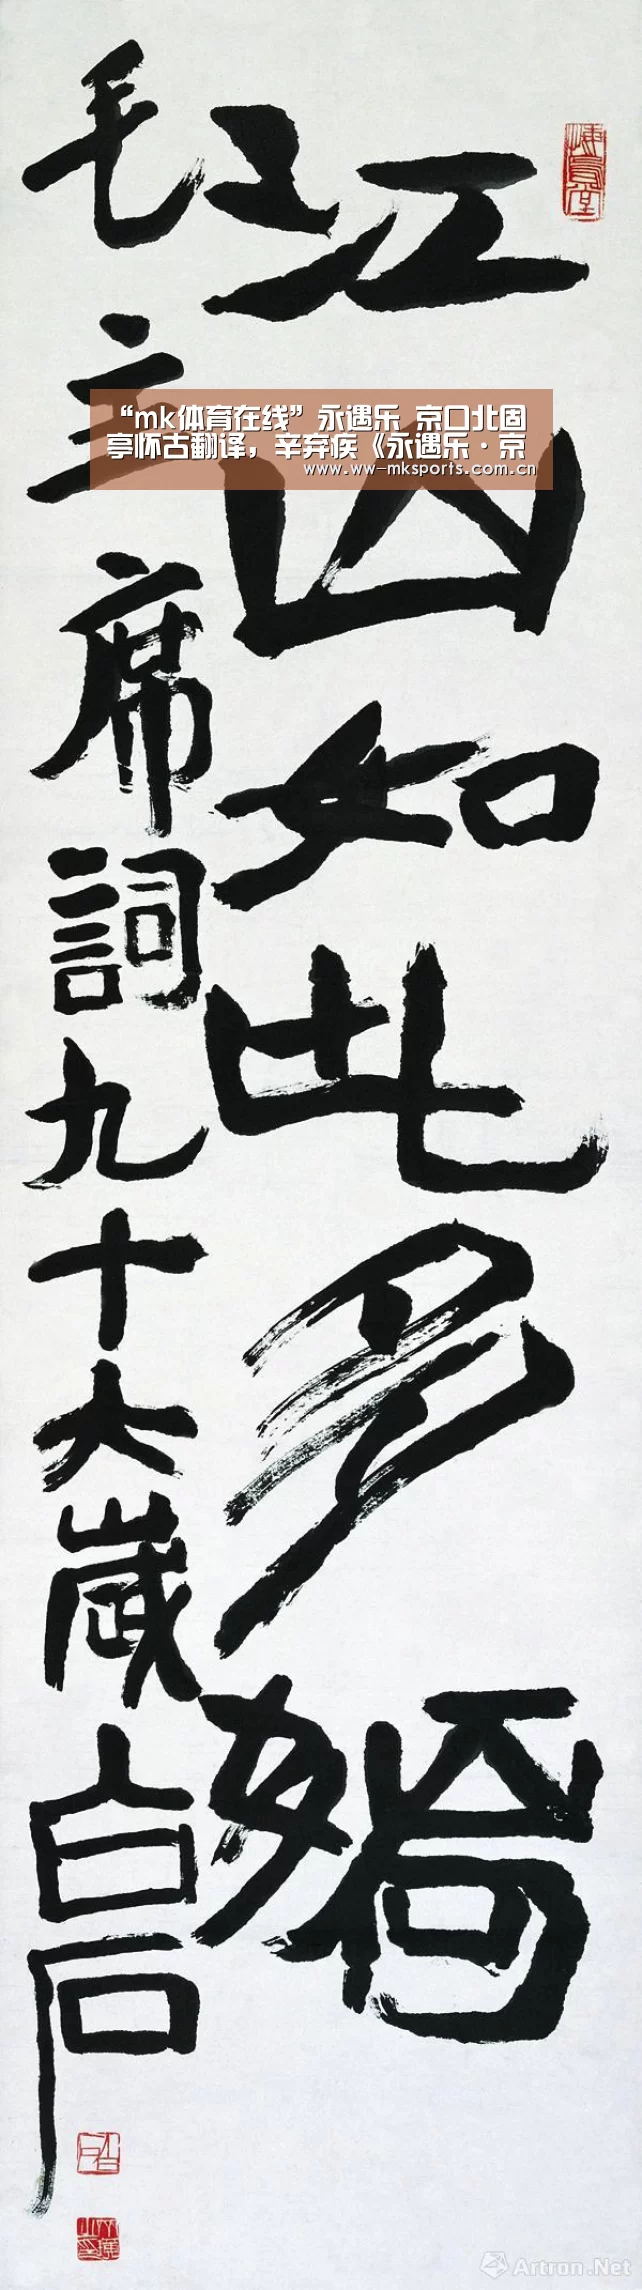 江山如此多嬌
毛主席詞九十六歲白石
“mk体育在线”永遇乐 京口北固
亭怀古翻译，辛弃疾《永遇乐·京
www.ww-mksports.com.cn
白石
Artron.Net